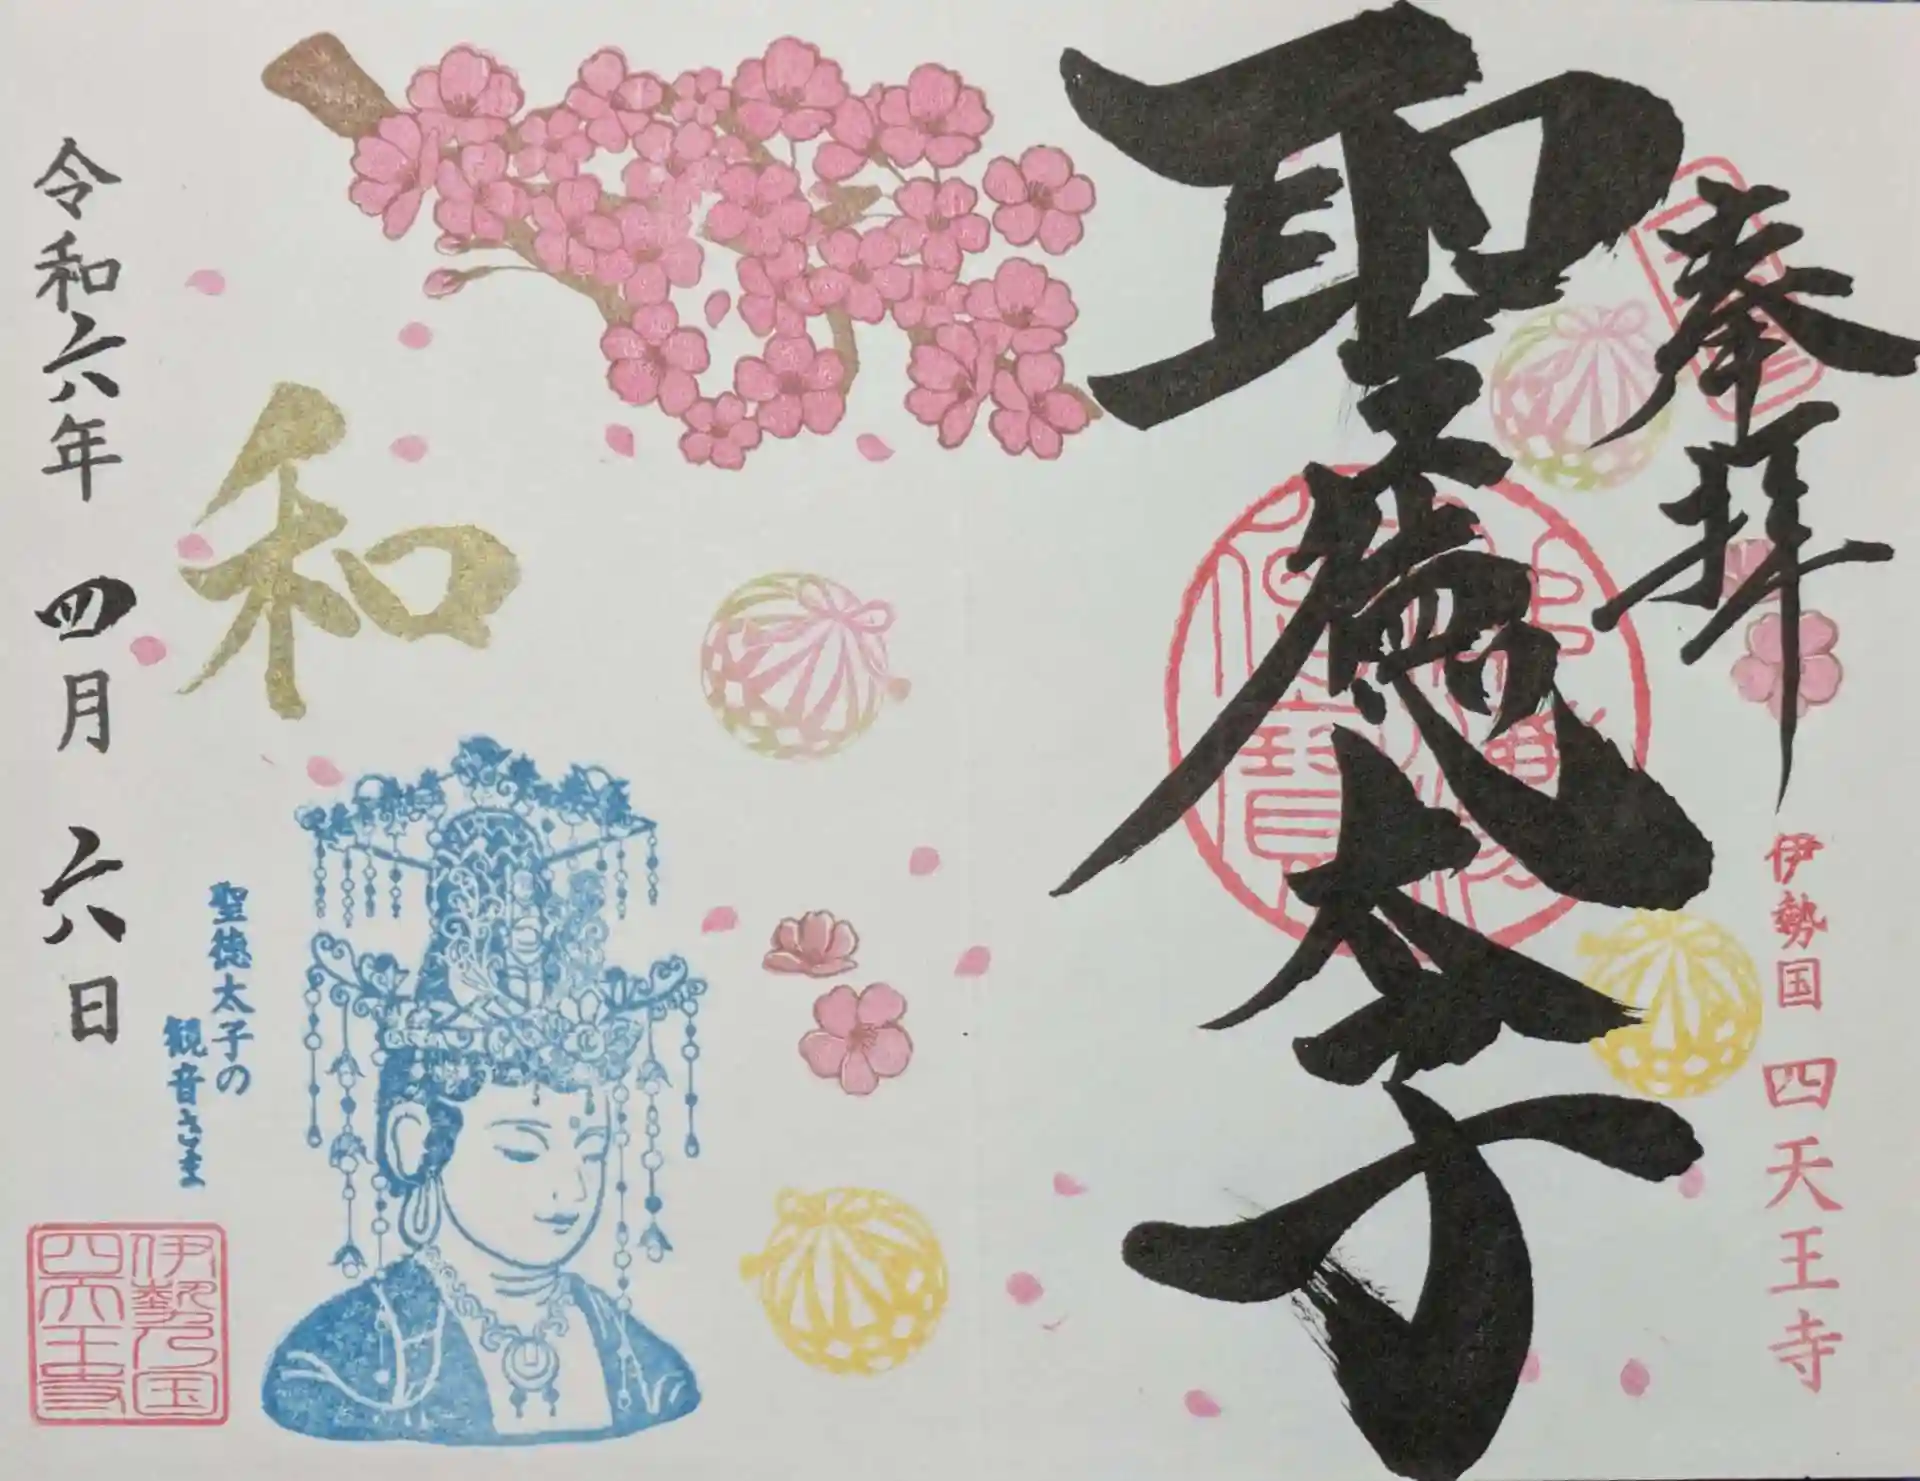 奉拝
聖徳太子
伊勢国 四天王寺
和
聖徳太子の
観音さま
令和六年 四月 六日
伊勢乃国
四天王寺